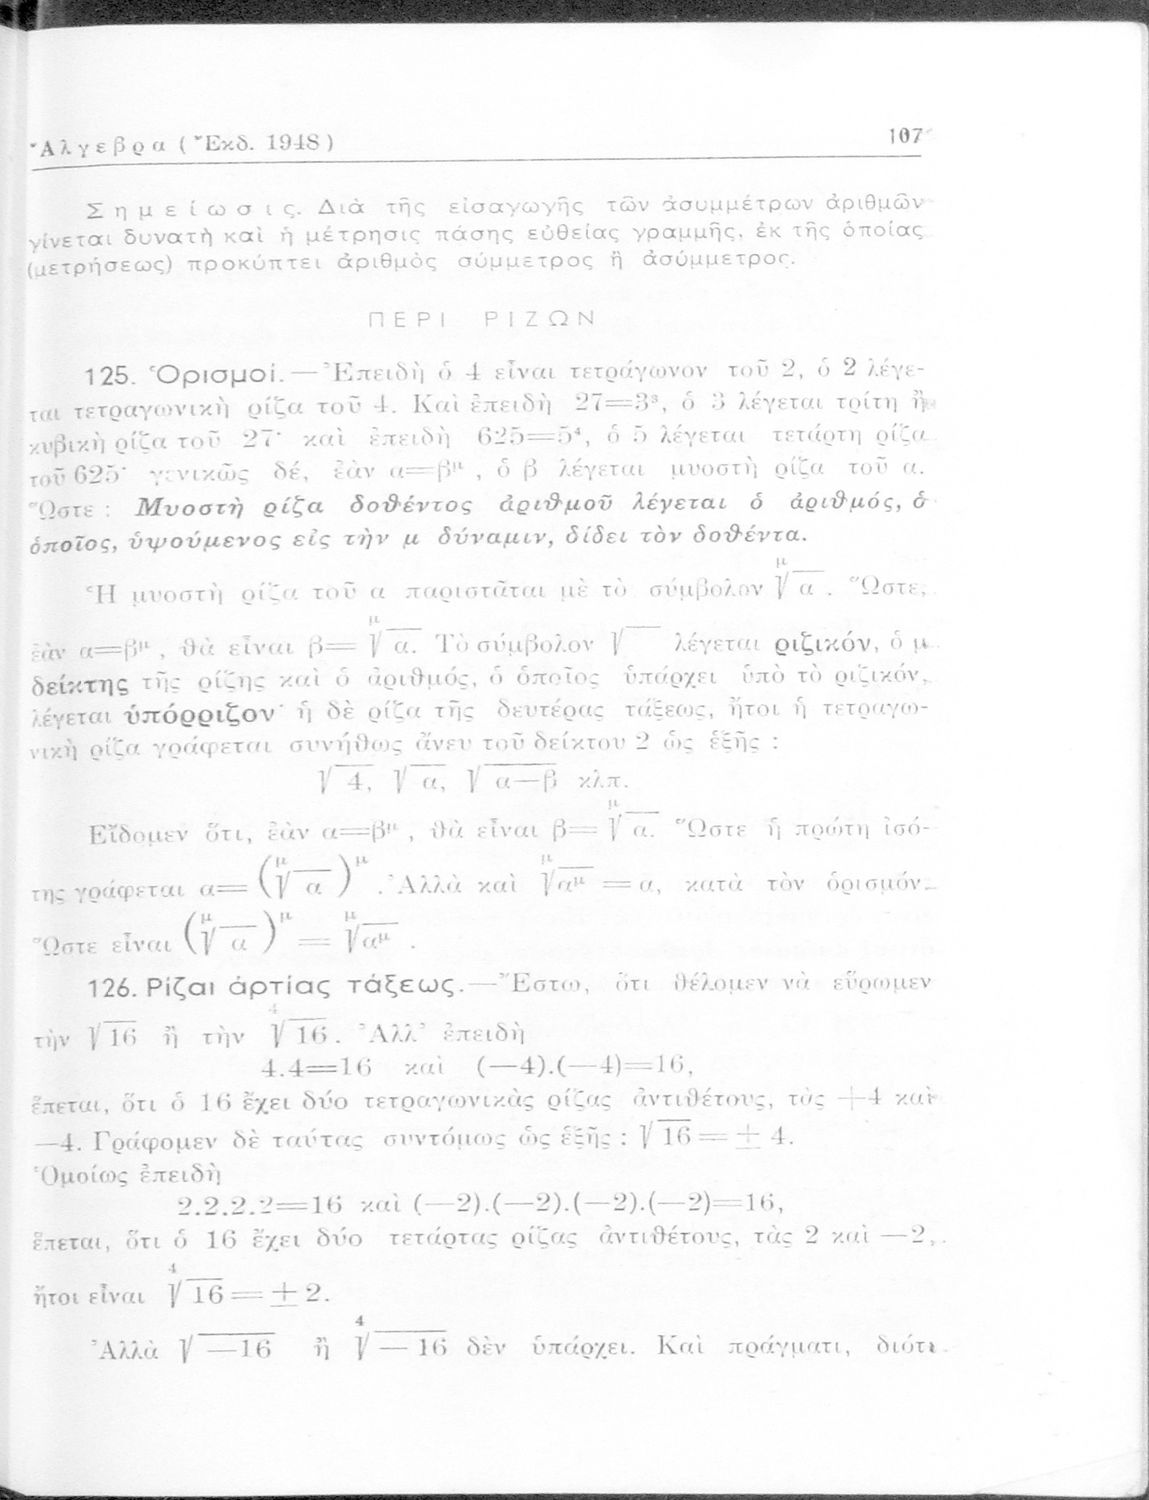 Ἄλγεβρα (Ἔκδ. 1948) 107
Σημείωσις. Διὰ τῆς εἰσαγωγῆς τῶν ἀσυμμέτρων ἀριθμῶν
γίνεται δυνατὴ καὶ ἡ μέτρησις πάσης εὐθείας γραμμῆς, ἐκ τῆς ὁποίας
(μετρήσεως) προκύπτει ἀριθμὸς σύμμετρος ἢ ἀσύμμετρος.
ΠΕΡΙ ΡΙΖΩΝ
125. Ὁρισμοί.—Ἐπειδὴ ὁ 4 εἶναι τετράγωνον τοῦ 2, ὁ 2 λέγε-
ται τετραγωνικὴ ρίζα τοῦ 4. Καὶ ἐπειδὴ 27=3³, ὁ 3 λέγεται τρίτη ἢ
κυβικὴ ρίζα τοῦ 27· καὶ ἐπειδὴ 625=5⁴, ὁ 5 λέγεται τετάρτη ρίζα
τοῦ 625· γενικῶς δέ, ἐὰν α=β^μ, ὁ β λέγεται μυοστὴ ρίζα τοῦ α.
Ὥστε : Μυοστὴ ρίζα δοθέντος ἀριθμοῦ λέγεται ὁ ἀριθμός, ὁ
ὁποῖος, ὑψούμενος εἰς τὴν μ δύναμιν, δίδει τὸν δοθέντα.
Ἡ μυοστὴ ρίζα τοῦ α παριστᾶται μὲ τὸ σύμβολον μ√α . Ὥστε,
ἐὰν α=β^μ, θὰ εἶναι β= μ√α. Τὸ σύμβολον √ λέγεται ριζικόν, ὁ μ
δείκτης τῆς ρίζης καὶ ὁ ἀριθμός, ὁ ὁποῖος ὑπάρχει ὑπὸ τὸ ριζικόν,
λέγεται ὑπόρριζον· ἡ δὲ ρίζα τῆς δευτέρας τάξεως, ἤτοι ἡ τετραγω-
νικὴ ρίζα γράφεται συνήθως ἄνευ τοῦ δείκτου 2 ὡς ἑξῆς :
√4, √α, √(α—β) κλπ.
Εἴδομεν ὅτι, ἐὰν α=β^μ, θὰ εἶναι β= μ√α. Ὥστε ἡ πρώτη ἰσό-
της γράφεται α=(μ√α)^μ. Ἀλλὰ καὶ μ√α^μ =α, κατὰ τὸν ὁρισμόν.
Ὥστε εἶναι (μ√α)^μ = μ√α^μ .
126. Ρίζαι ἀρτίας τάξεως.—Ἔστω, ὅτι θέλομεν νὰ εὕρωμεν
τὴν √16 ἢ τὴν ⁴√16. Ἀλλ' ἐπειδὴ
4.4=16 καὶ (—4).(—4)=16,
ἕπεται, ὅτι ὁ 16 ἔχει δύο τετραγωνικὰς ρίζας ἀντιθέτους, τὰς +4 καὶ
—4. Γράφομεν δὲ ταύτας συντόμως ὡς ἑξῆς : √16 = ± 4.
Ὁμοίως ἐπειδὴ
2.2.2.2=16 καὶ (—2).(—2).(—2).(—2)=16,
ἕπεται, ὅτι ὁ 16 ἔχει δύο τετάρτας ρίζας ἀντιθέτους, τὰς 2 καὶ —2,
ἤτοι εἶναι ⁴√16 = ± 2.
Ἀλλὰ √—16 ἢ ⁴√—16 δὲν ὑπάρχει. Καὶ πράγματι, διότι